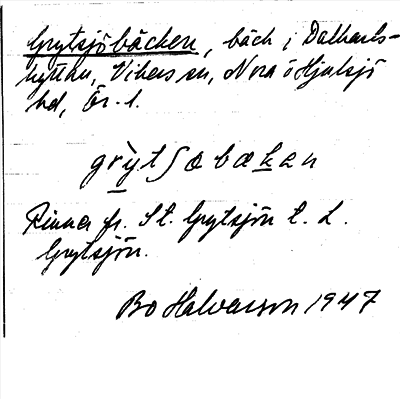 Grytsjöbäcken, bäck i Dalkarls-
hyttan, Vikers sn, Nora o Hjulsjö
hd, Ör. l.
grỳtʃøbækan
Rinner fr. St. Grytsjön t. L.
Grytsjön.
Bo Halvarson 1947